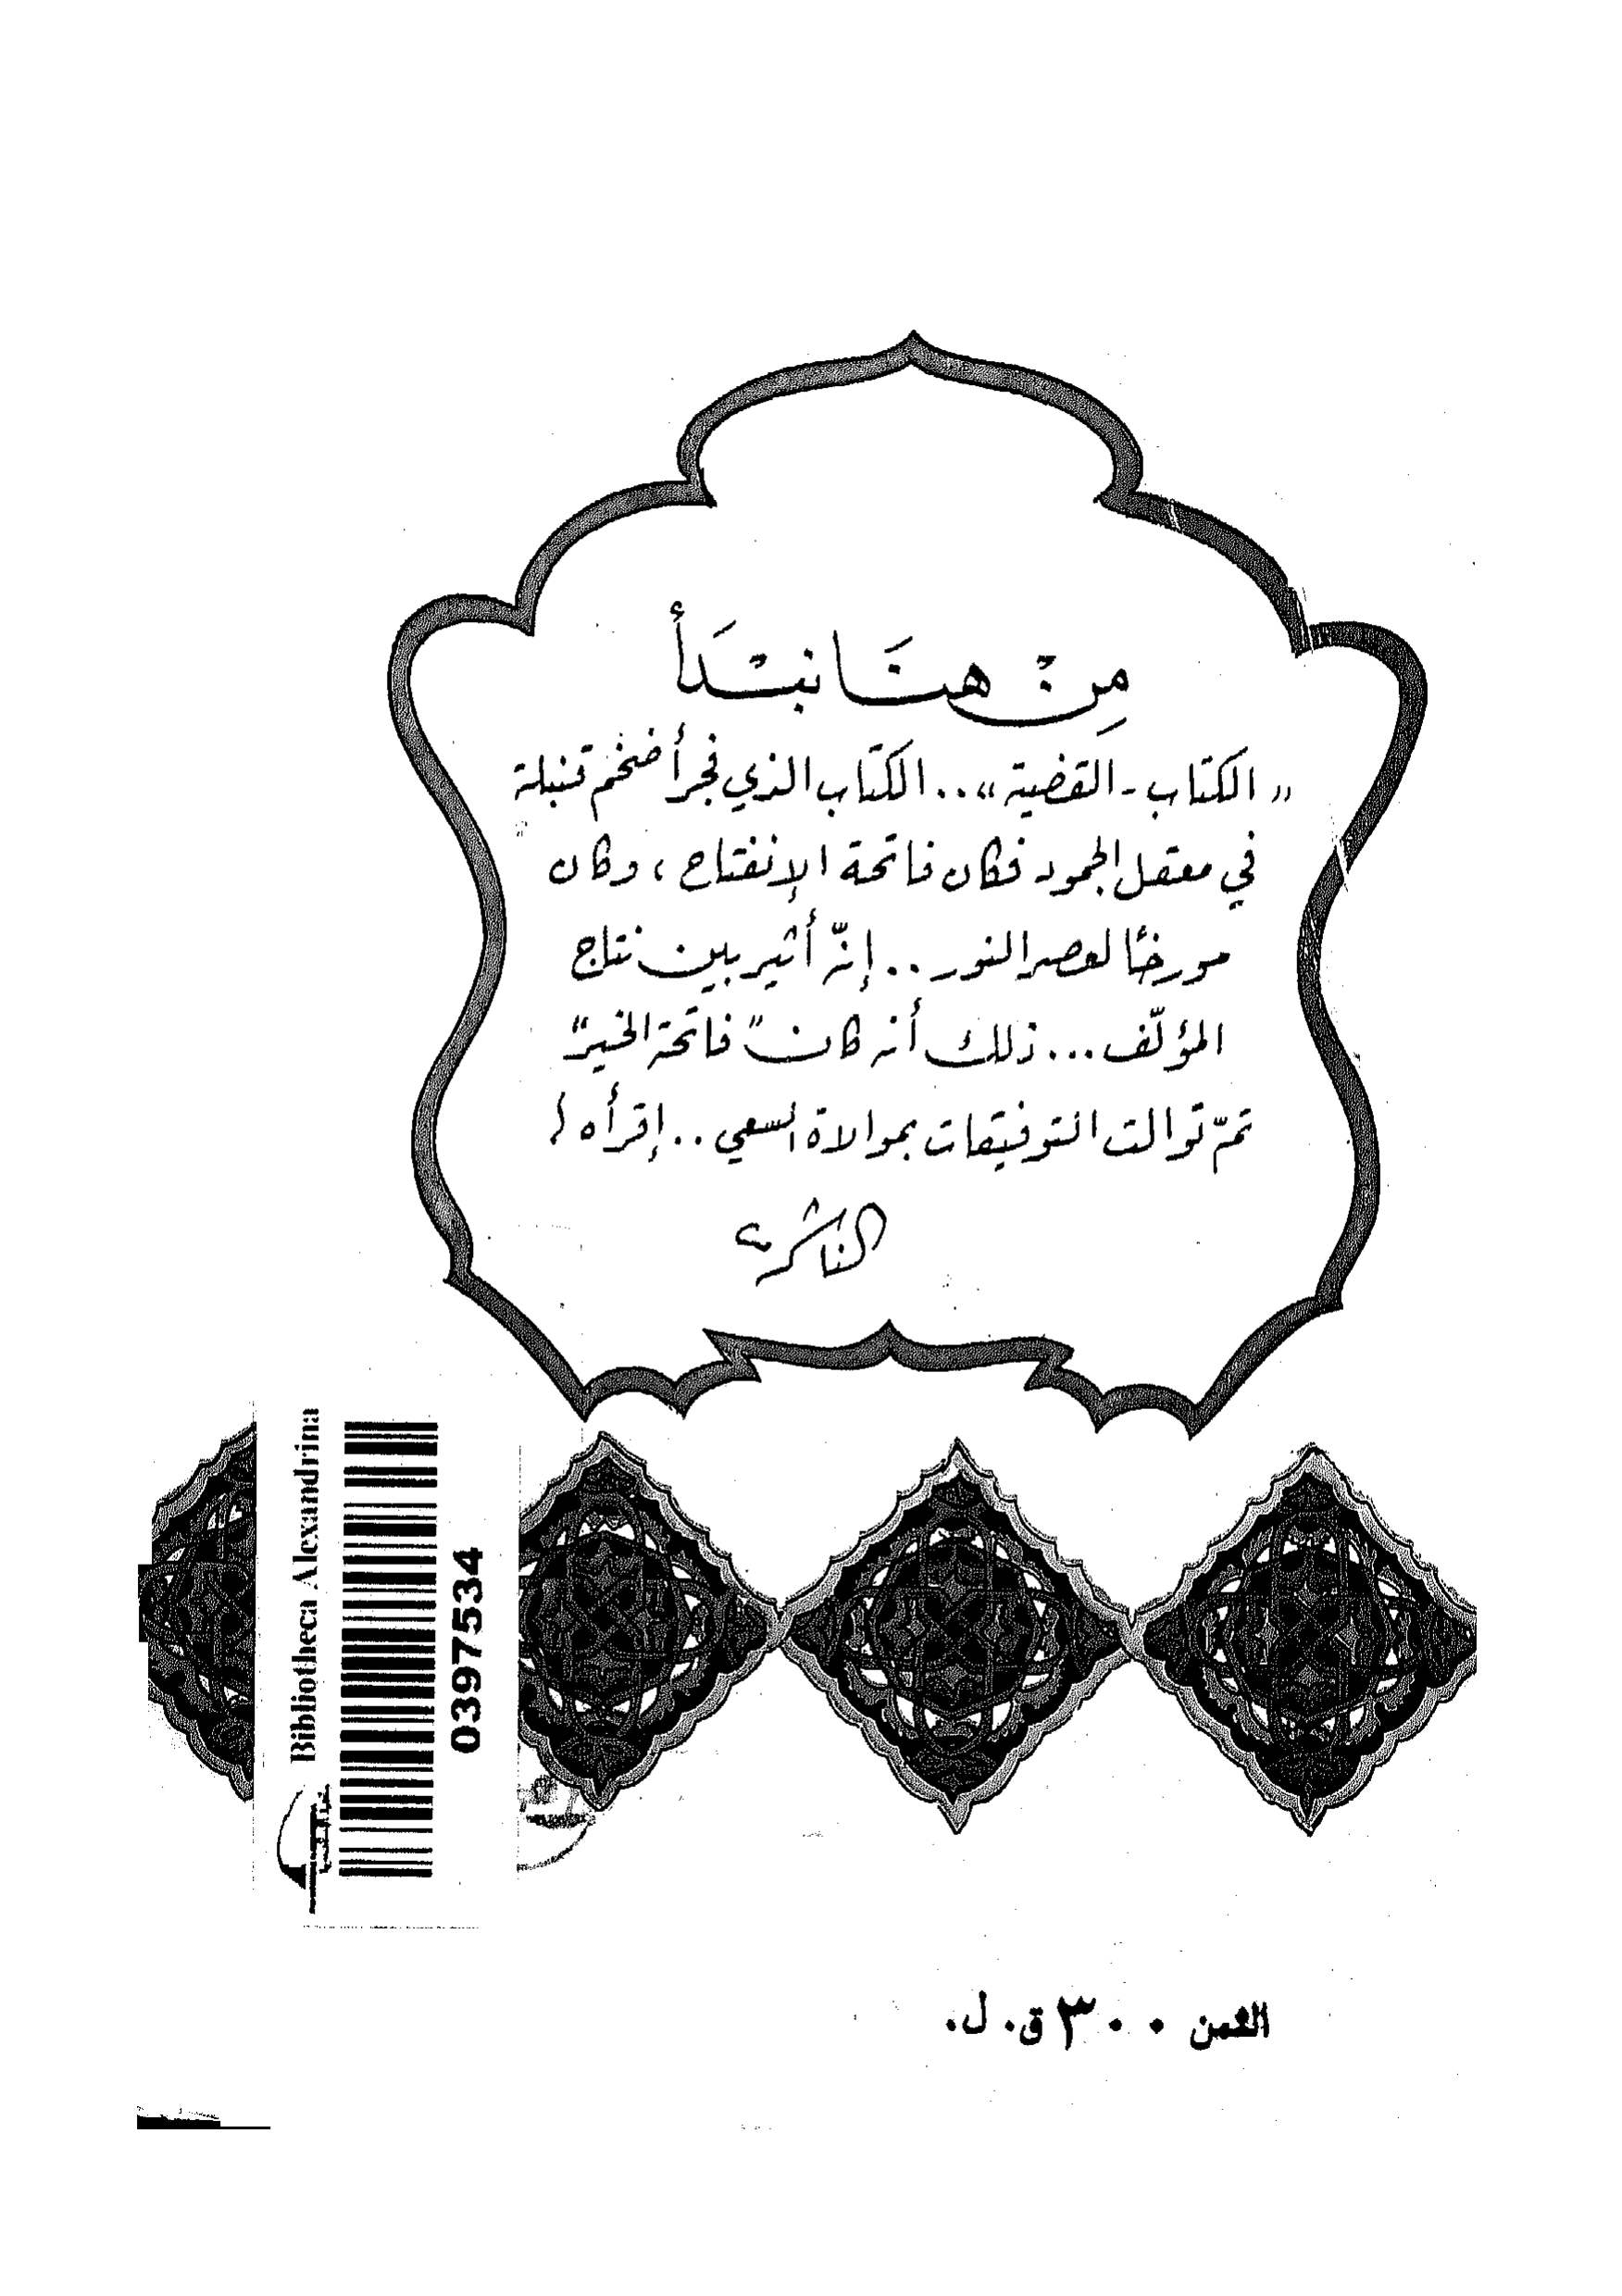 مِنْ هنَا نبتَدَأ
« الكتاب - القضية » .. الكتاب الذي فجر أضخم قنبلة
في معقل الجمود فكان فاتحة الإنفتاح ، وكان
مورخًا لعصر النور .. إنّه أثير بين نتاج
المؤلّف ... ذلك أنه كان " فاتحة الخير "
ثمّ توالت التوفيقات بموالاة السعي .. إقرأه !
الناشر
Bibliotheca Alexandrina
0397534
الثمن ٣٠٠ ق. ل.